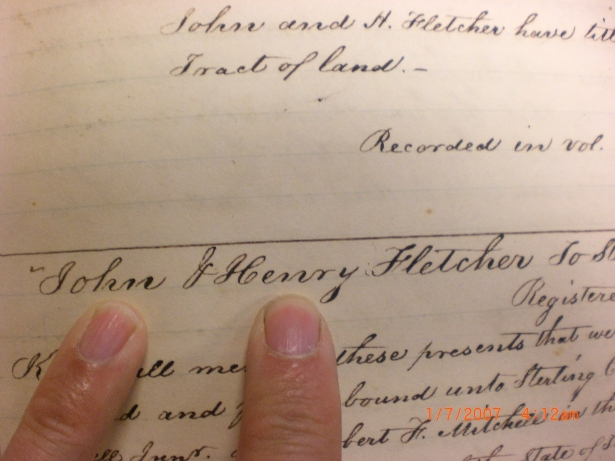 John and H. Fletcher have
Tract of land. –
Recorded in vol.
"John & Henry Fletcher To
Registere
all me these presents that we
d and bound unto Sterling
bert F. Mitchell in
1/7/2007 4:12am
State of